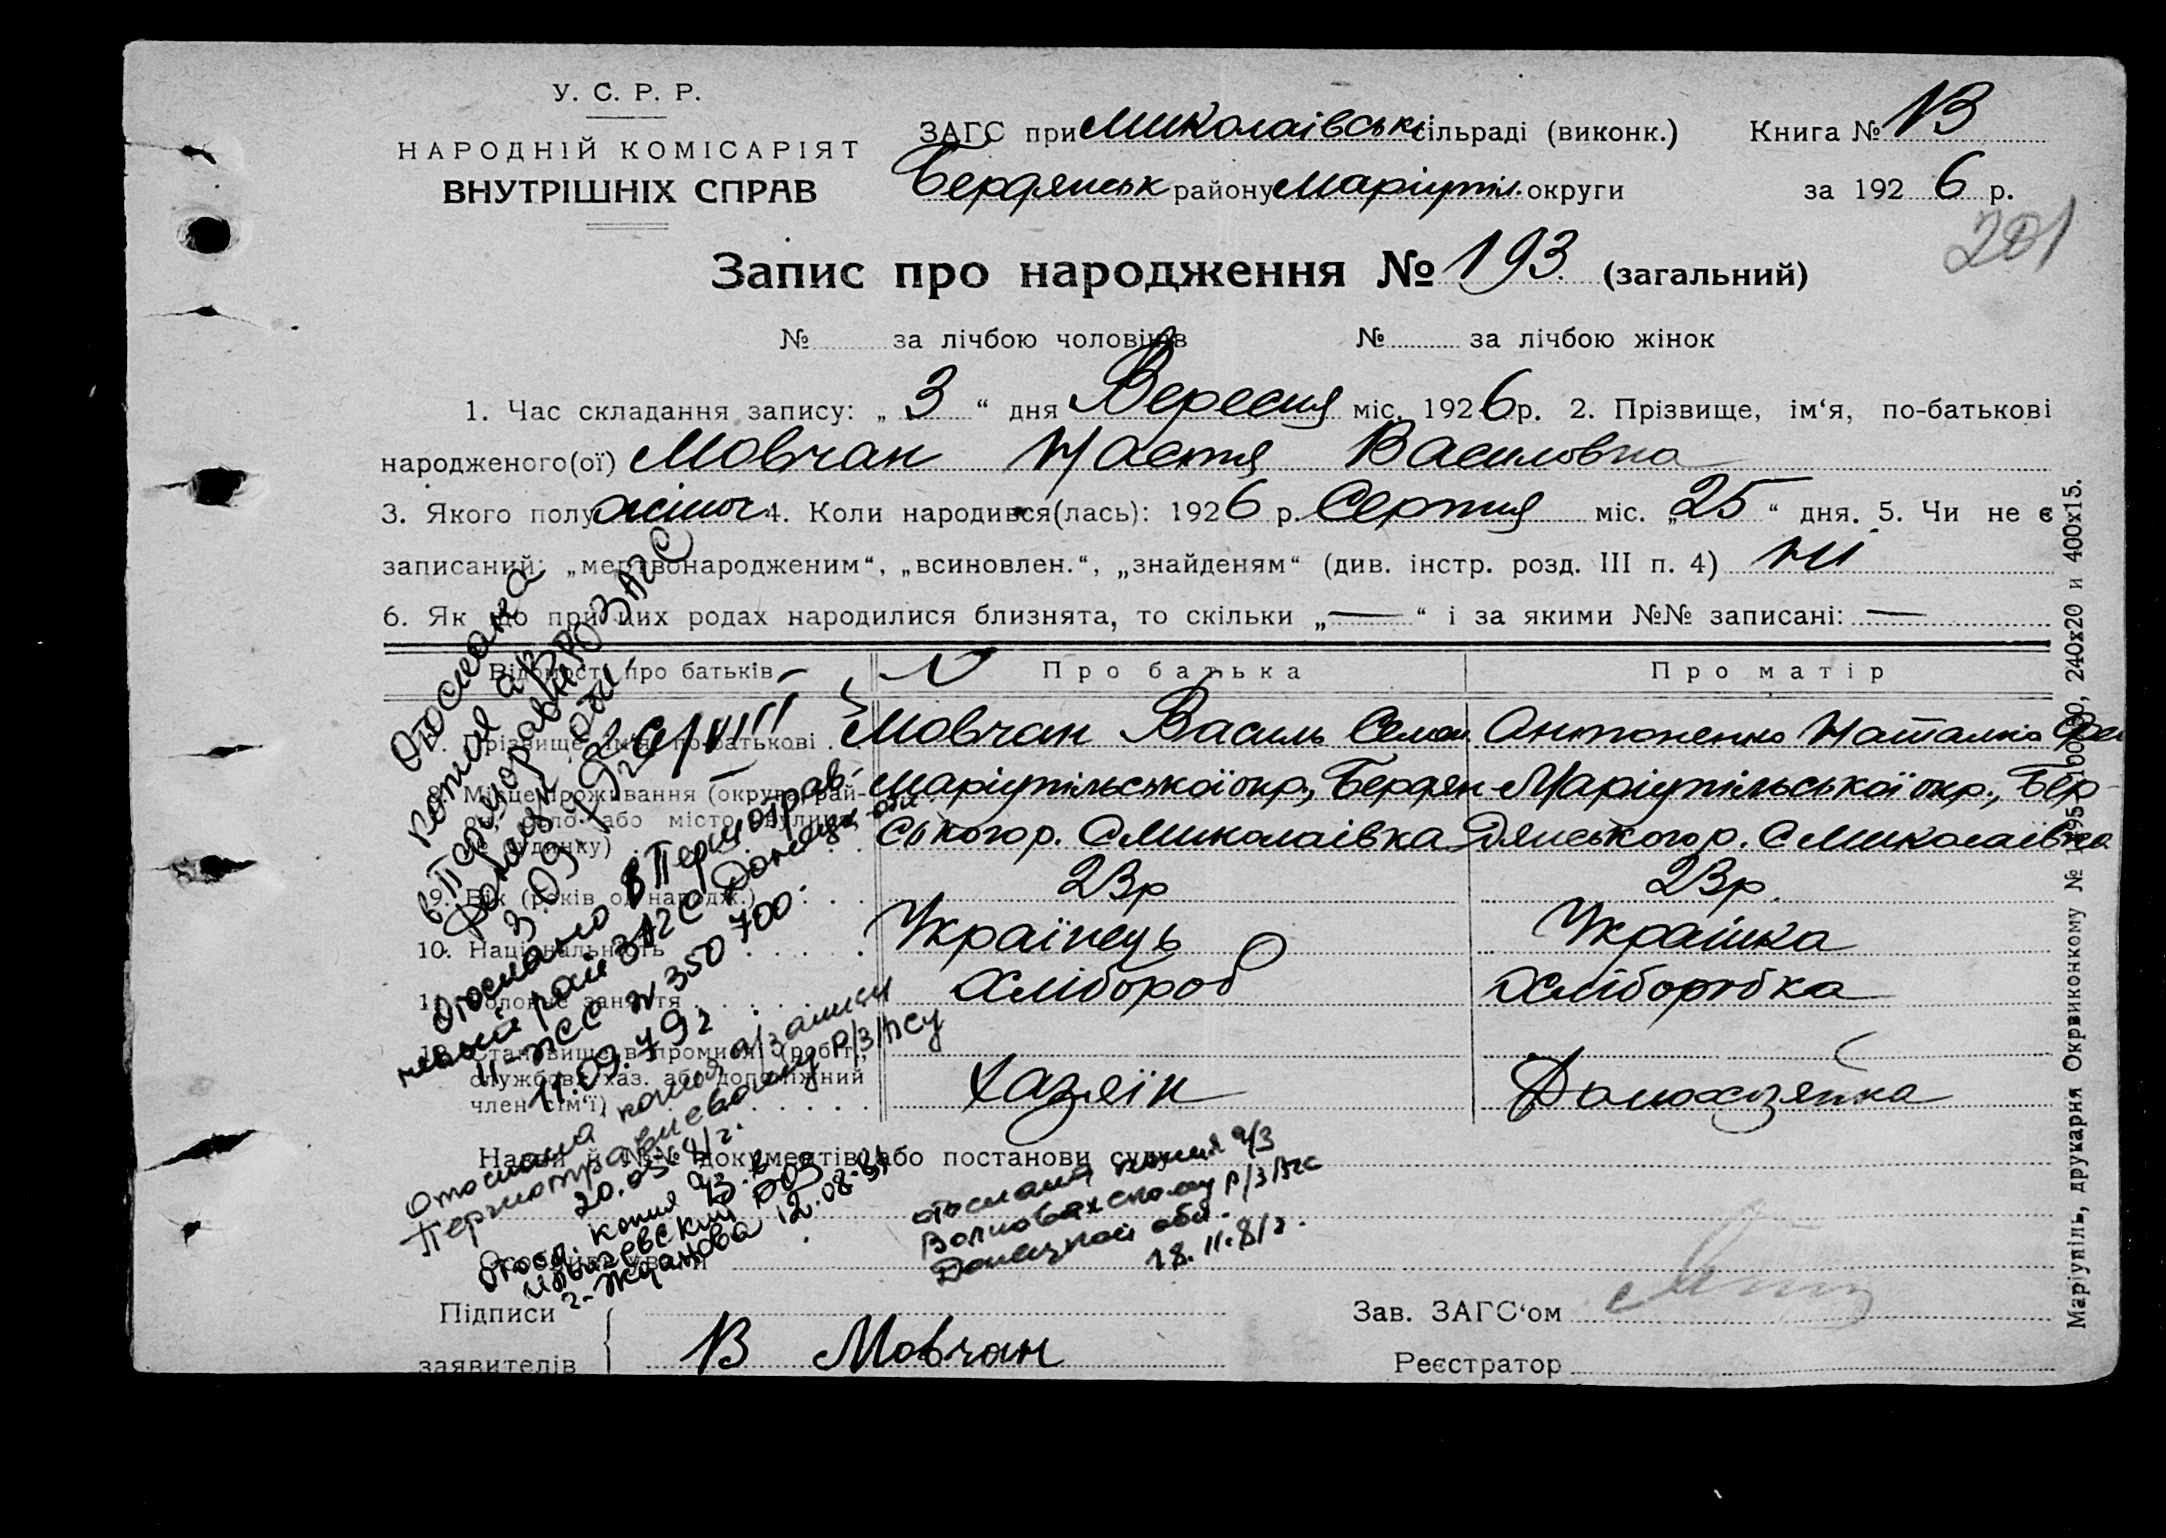 У. С. Р. Р.
НАРОДНІЙ КОМІСАРІЯТ
ВНУТРІШНІХ СПРАВ
ЗАГС при Миколаівські сільраді (виконк.) Книга № 13
Бердянськ району Маріупіл. округи за 1926 р.
201
Запис про народження № 193. (загальний)
№ за лічбою чоловіків № за лічбою жінок
1. Час складання запису: „ 3 “ дня Вересня міс. 1926 р. 2. Прізвище, ім‘я, по-батькові
народженого(ої) Мовчан Настя Василовна
3. Якого полу жіноч 4. Коли народився(лась): 1926 р. Серпня міс. „ 25 “ дня. 5. Чи не є
записаний: „мертвонародженим“, „всиновлен.“, „знайденям“ (див. інстр. розд. III п. 4) ні
6. Як що при цих родах народилися близнята, то скільки „ — “ і за якими №№ записані: —
Відомості про батьків Про батька Про матір
7. Прізвище, ім'я, по-батькові Мовчан Василь Семен Антоненко Наталка
8. Місце проживання (округа, рай-
он, село або місто, вулиця,
№ будинку)
Маріупільської окр., Бердян
ського р. С Миколаівка
Маріупільської окр., Бер-
дянського р. С Миколаівка
9. Вік (років од народж.) 23р 23р.
10. Національність Українець Украінка
11. Головне заняття Хлібороб Хліборобка
12. Становище в промислі (робіт.,
службов., хаз. або допоміжний
член сім‘ї) Хазяїн Домохазяйка
Назви й №№ документів або постанови суду
Особливі уваги
Підписи
заявителів В Мовчан
Зав. ЗАГС‘ом
Реєстратор
Отослана
копия а/з
в Першотравн РО ЗАГС
Донецк. обл.
3.09.79г
26/VIII
Отослано в Першотрав-
невый рай ЗАГС Донецк. обл.
II-ЖС № 350700
11.09.79г
Отослана копия а/записи
Першотравневому Р/ЗАГСу
20.05.81г.
Отосл. копия а/з. в
Ильичевский РОЗ
г. Жданова 12.08.81
отослана копия а/з
Волновахскому Р/ЗАГС
Донецкой обл.
18.11.81г.
Маріупіль, друкарня Окрвиконкому № 240х20 и 400х15.